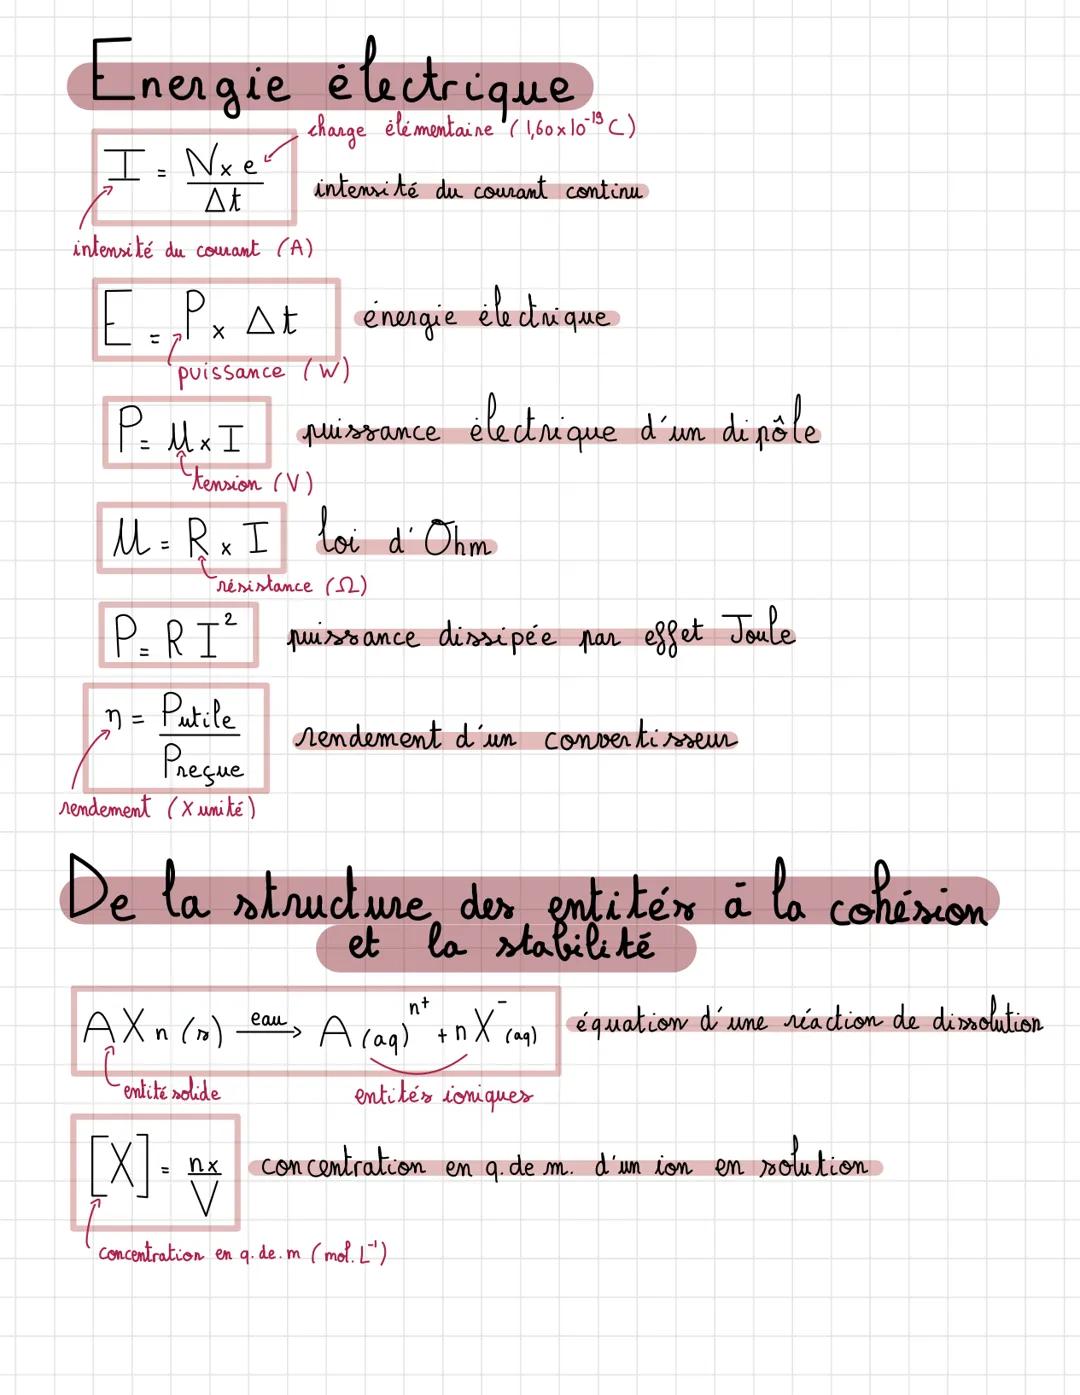 Energie électrique
charge élémentaire (1,60x10⁻¹⁹ C)
I = N x e / Δt
intensité du courant continu
intensité du courant (A)
E = P x Δt
énergie électrique
puissance (W)
P = U x I
puissance électrique d'un dipôle
tension (V)
U = R x I
loi d'Ohm
résistance (Ω)
P = R I²
puissance dissipée par effet Joule
η = Putile / Preçue
rendement d'un convertisseur
rendement (X unité)
De la structure des entités à la cohésion
et la stabilité
AXn (s) eau → A(aq)ⁿ⁺ + n X⁻(aq)
équation d'une réaction de dissolution
entité solide
entités ioniques
[X] = nx / V
concentration en q. de m. d'un ion en solution
concentration en q. de. m (mol. L⁻¹)